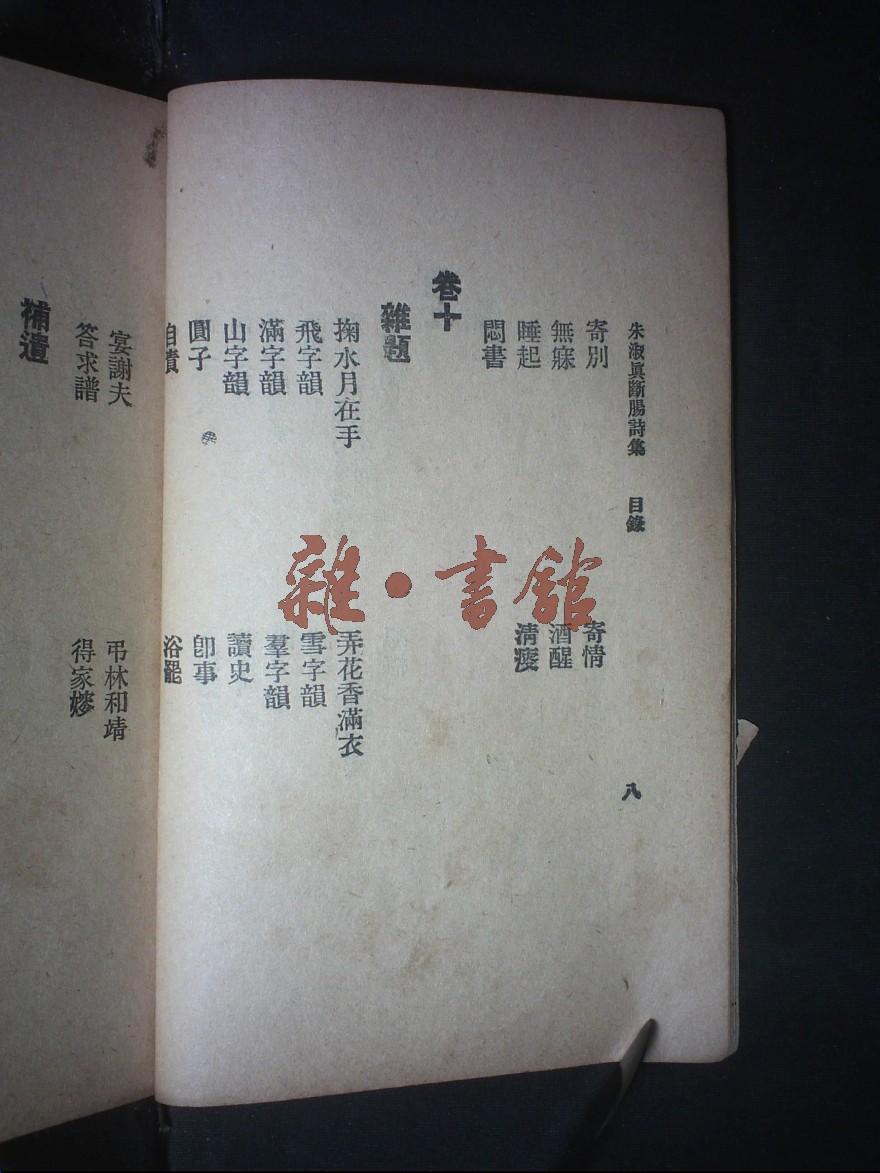 朱淑眞斷腸詩集 目錄 八
寄別 寄情
無寐 酒醒
睡起 清瘦
悶書
卷十
雜題
掬水月在手 弄花香滿衣
飛字韻 雪字韻
滿字韻 羣字韻
山字韻 讀史
圓子 卽事
自責 浴罷
宴謝夫 弔林和靖
答求譜 得家嫂
補遺
雜·書館